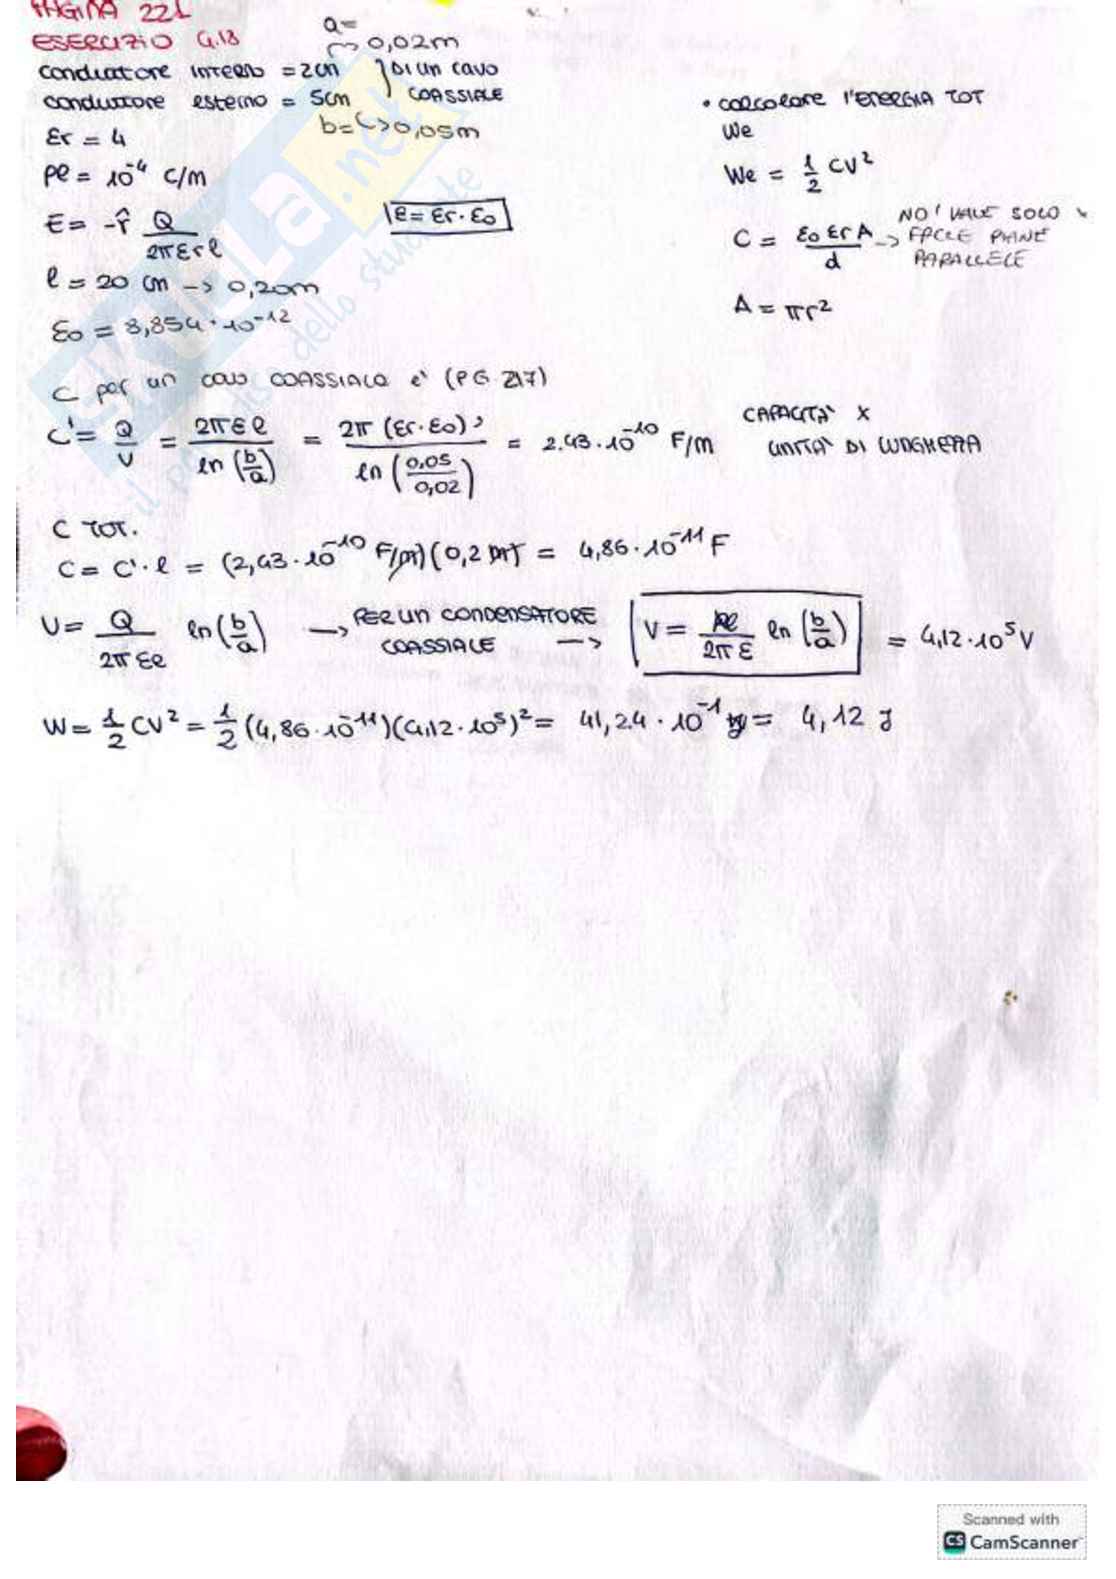 PAGINA 221
ESERCIZIO 4.18
a=
↪ 0,02m
conduttore interno = 2cm } DI un cavo
conduttore esterno = 5cm COASSIALE
b= ↪ 0,05m
εr = 4
ρl = 10⁻⁴ C/m
E = -r̂ Q / 2πεrl
|e = εr · ε0|
l = 20 cm -> 0,20m
ε0 = 8,854 · 10⁻¹²
• calcolare l'ENERGIA TOT
We
We = 1/2 CV²
C = ε0 εr A / d -> NO! VALE SOLO x
FACCE PIANE
PARALLELE
A = πr²
C per un cavo COASSIALE e' (PG 217)
C' = Q/V = 2πεl / ln(b/a) = 2π (εr·ε0) / ln(0,05/0,02) = 2.43·10⁻¹⁰ F/m
CAPACITA' X
UNITA' DI LUNGHEZZA
C TOT.
C = C'·l = (2,43·10⁻¹⁰ F/m)(0,2 m) = 4,86·10⁻¹¹ F
V = Q / 2πεl ln(b/a) -> PER UN CONDENSATORE
COASSIALE -> V = ρl / 2πε ln(b/a) = 4,12·10⁵ V
W = 1/2 CV² = 1/2 (4,86·10⁻¹¹)(4,12·10⁵)² = 41,24·10⁻¹ = 4,12 J
skuola.net
il paradiso dello studente
Scanned with
CS CamScanner